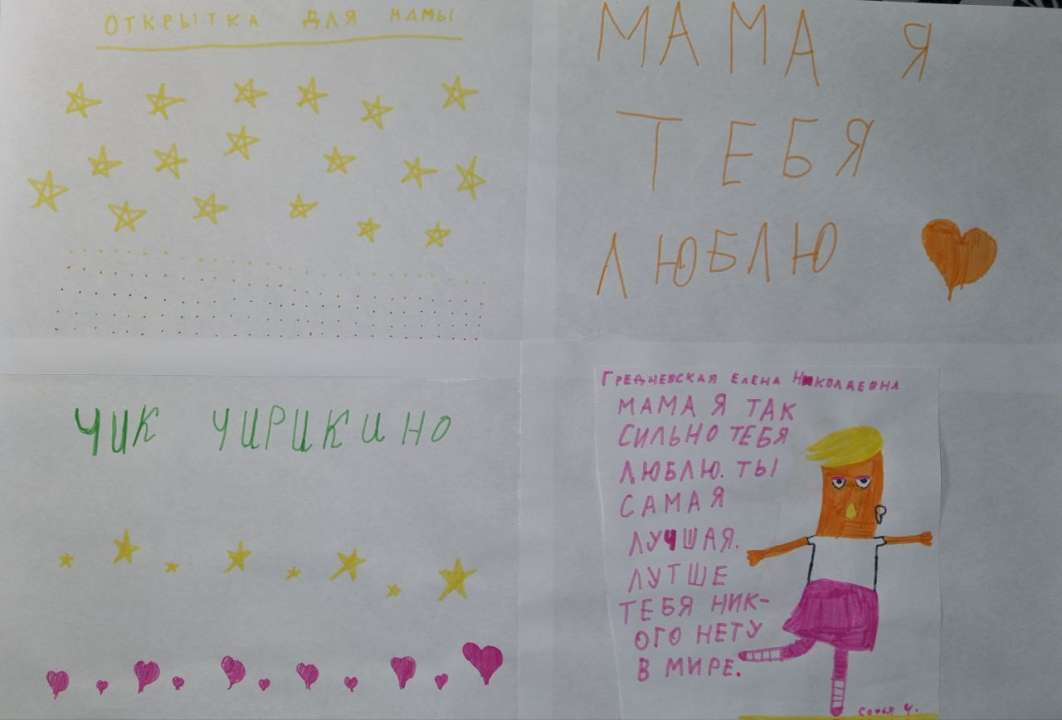 ОТКРЫТКА ДЛЯ МАМЫ
МАМА Я
ТЕБЯ
ЛЮБЛЮ
ЧИК ЧИРИКИНО
ГРЕДНЕВСКАЯ ЕЛЕНА НИКОЛАЕВНА
МАМА Я ТАК
СИЛЬНО ТЕБЯ
ЛЮБЛЮ. ТЫ
САМАЯ
ЛУЧШАЯ.
ЛУТШЕ
ТЕБЯ НИК-
ОГО НЕТУ
В МИРЕ.
Софья Ч.